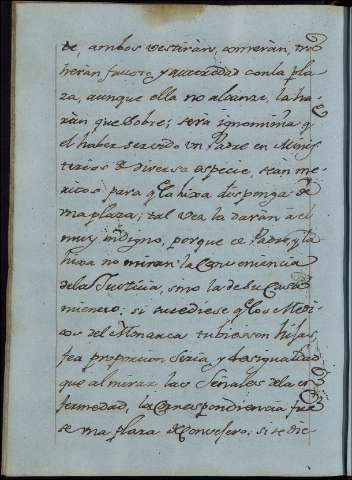 te, ambos vestiràn, comeràn, tra
heràn fausto, y autoridad con la pla
za, aunque ella no alcanze, la ha
ràn que sobre; serà ignominia q
el haber servido un Padre en Minis
terios de diversa especie, sean me
ritos para q la hixa disponga de
una plaza; tal vez la daràn a el
muy indigno, porque el Padre, y la
hixa no miran la Conveniencia
de la Justicia, sino la de su Casa
miento; si sucediese q los Medi
cos del Monarca tubiesen hijas,
fea proporcion seria, y desigualdad
que al mirar las señales de la en
fermedad, la correspondiencia fue
se una plaza de Consejero; si se die